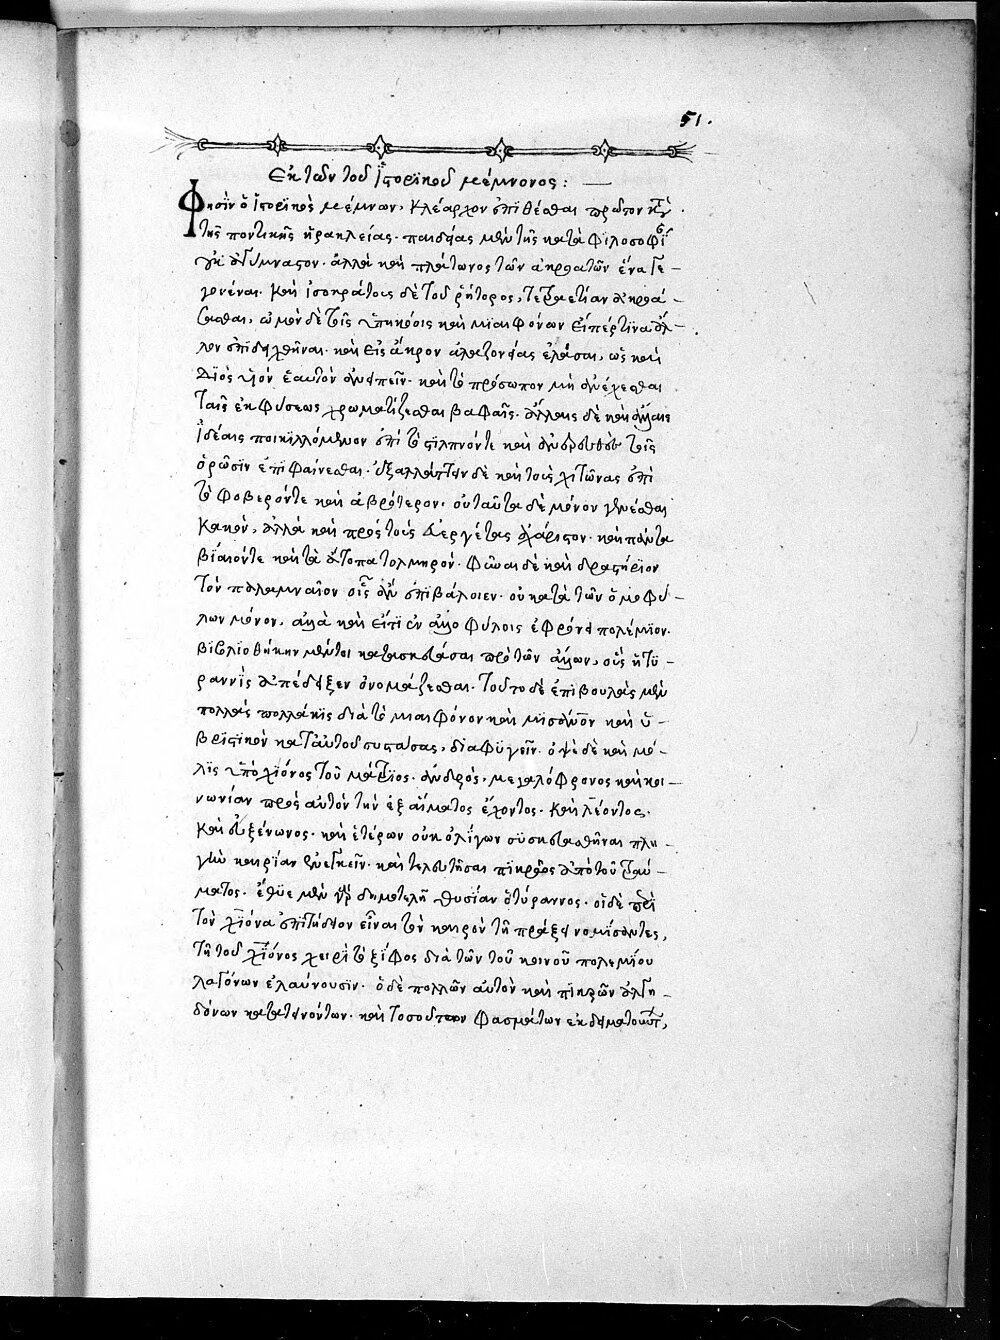 51.
Ἐκ τῶν τοῦ ἱστορικοῦ μέμνονος:
Φησὶν ὁ ἱστορικὸς μέμνων, κλέαρχον ἐπιθέσθαι πρῶτον κατὰ
τῆς ποντικῆς ἡρακλείας. παιδείας μὲν τῆς κατὰ φιλοσοφίαν
οὐκ ἀγύμναστον. ἀλλὰ καὶ πλάτωνος τῶν ἀκροατῶν ἕνα γε-
γονέναι. καὶ ἰσοκράτους δὲ τοῦ ῥήτορος, τετραετίαν ἀκροά-
σασθαι, ὠμὸν δὲ τοῖς ὑπηκόοις καὶ μιαιφόνον εἴπέρ τινα ἄλ-
λον ἐπιδειχθῆναι. καὶ εἰς ἄκρον ἀλαζονείας ἐλάσαι, ὡς καὶ
Διὸς υἱὸν ἑαυτὸν ἀνειπεῖν. καὶ τὸ πρόσωπον μὴ ἀνέχεσθαι
ταῖς ἐκ φύσεως χρωματίζεσθαι βαφαῖς. ἄλλαις δὲ καὶ ἄλλαις
ἰδέαις ποικιλλόμενον ἐπὶ τὸ στιλπνόν τε καὶ ἐνερευθὲς τοῖς
ὁρῶσιν ἐπιφαίνεσθαι. ἐξαλλάττειν δὲ καὶ τοὺς χιτῶνας ἐπὶ
τὸ φοβερόν τε καὶ ἁβρότερον. οὐ ταῦτα δὲ μόνον γενέσθαι
κακόν, ἀλλὰ καὶ πρὸς τοὺς εὐεργέτας ἀχάριστον. καὶ πάντα
βίαιόν τε καὶ τὰ ἄτοπα τολμηρόν. φῦναι δὲ καὶ δραστήριον
τὸν παλαμναῖον οἷς ἂν ἐπιβάλοιεν. οὐ κατὰ τῶν ὁμοφύ-
λων μόνον, ἀλλὰ καὶ εἴ τι ἐν ἀλλοφύλοις ἐφρόνει πολέμιον.
βιβλιοθήκην μέντοι κατασκευάσαι πρὸ τῶν ἄλλων, οὓς ἡ τυ-
ραννὶς ἀπέδειξεν ὀνομάζεσθαι. τοῦτο δὲ ἐπιβουλὰς μὲν
πολλὰς πολλάκις διὰ τὸ μιαιφόνον καὶ μισάνθρωπον καὶ ὑ-
βριστικὸν κατ' αὐτοῦ συστάσας, διαφυγεῖν. ὀψὲ δὲ καὶ μό-
λις ὑπὸ χίονος τοῦ μάτριος. ἀνδρὸς, μεγαλόφρονος καὶ κοι-
νωνίαν πρὸς αὐτὸν τὴν ἐξ αἵματος ἔχοντος. καὶ λέοντος.
καὶ εὐξένωνος. καὶ ἑτέρων οὐκ ὀλίγων συσκευασθῆναι πλη-
γὴν καιρίαν ἐνεγκεῖν. καὶ τελευτῆσαι πικρῶς ἀπὸ τοῦ τραύ-
ματος. ἔθυε μὲν γὰρ δημοτελῆ θυσίαν ὁ τύραννος. οἱ δὲ περὶ
τὸν χίονα ἐπιτήδειον εἶναι τὸν καιρὸν τῇ πράξει νομίσαντες,
τῇ τοῦ χίονος χειρὶ τὸ ξίφος διὰ τῶν τοῦ κοινοῦ πολεμίου
λαγόνων ἐλαύνουσιν. ὁ δὲ πολλῶν αὐτὸν καὶ πικρῶν ἀλγη-
δόνων κατατεινόντων. καὶ τοσούτων φασμάτων ἐκδειματούντων,